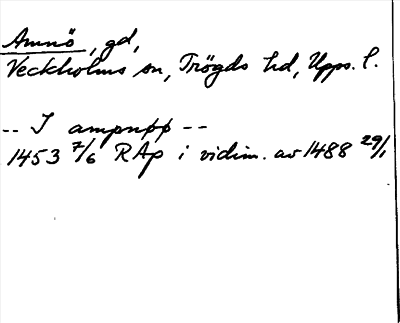 Amnö, gd,
Veckholms sn, Trögds hd, Upps. l.
-- I ampnøø --
1453 7/6 RAp i vidim. av 1488 29/1